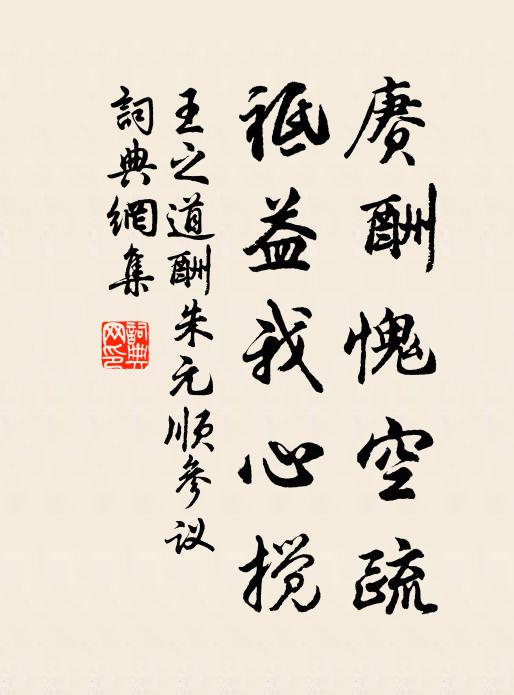 赓酬愧空疏
祗益我心搅
王之道酬朱元顺参议
詞典網集
詞典网印